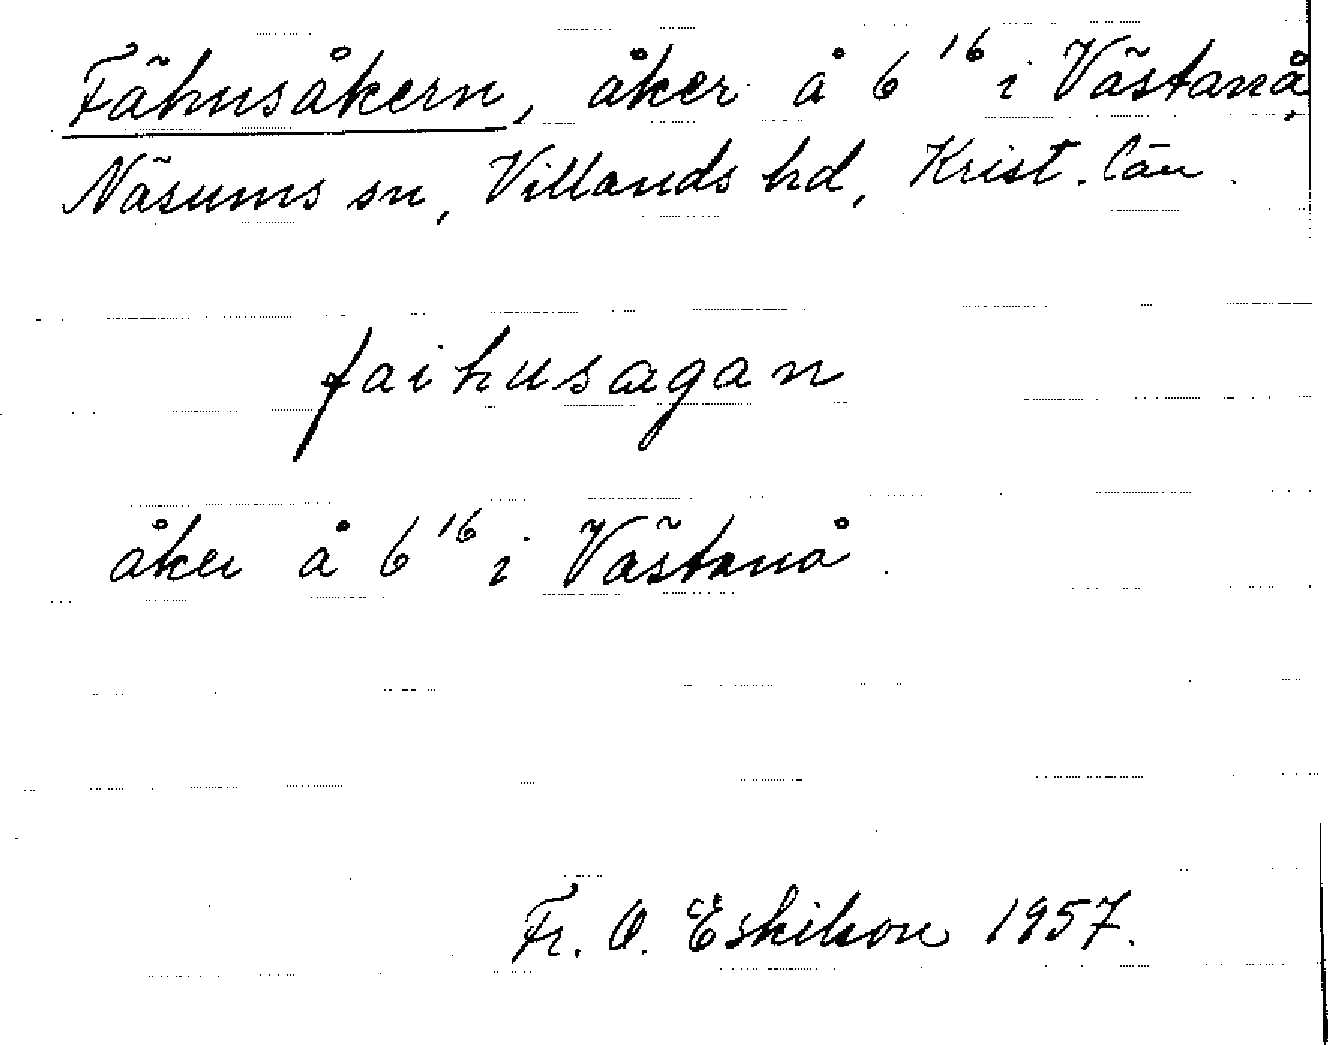 Fähusåkern, åker å 6¹⁶ i Västanå,
Näsums sn, Villands hd, Krist. län.
faihusagan
åker å 6¹⁶ i Västanå.
Fr. O. Eskilson 1957.